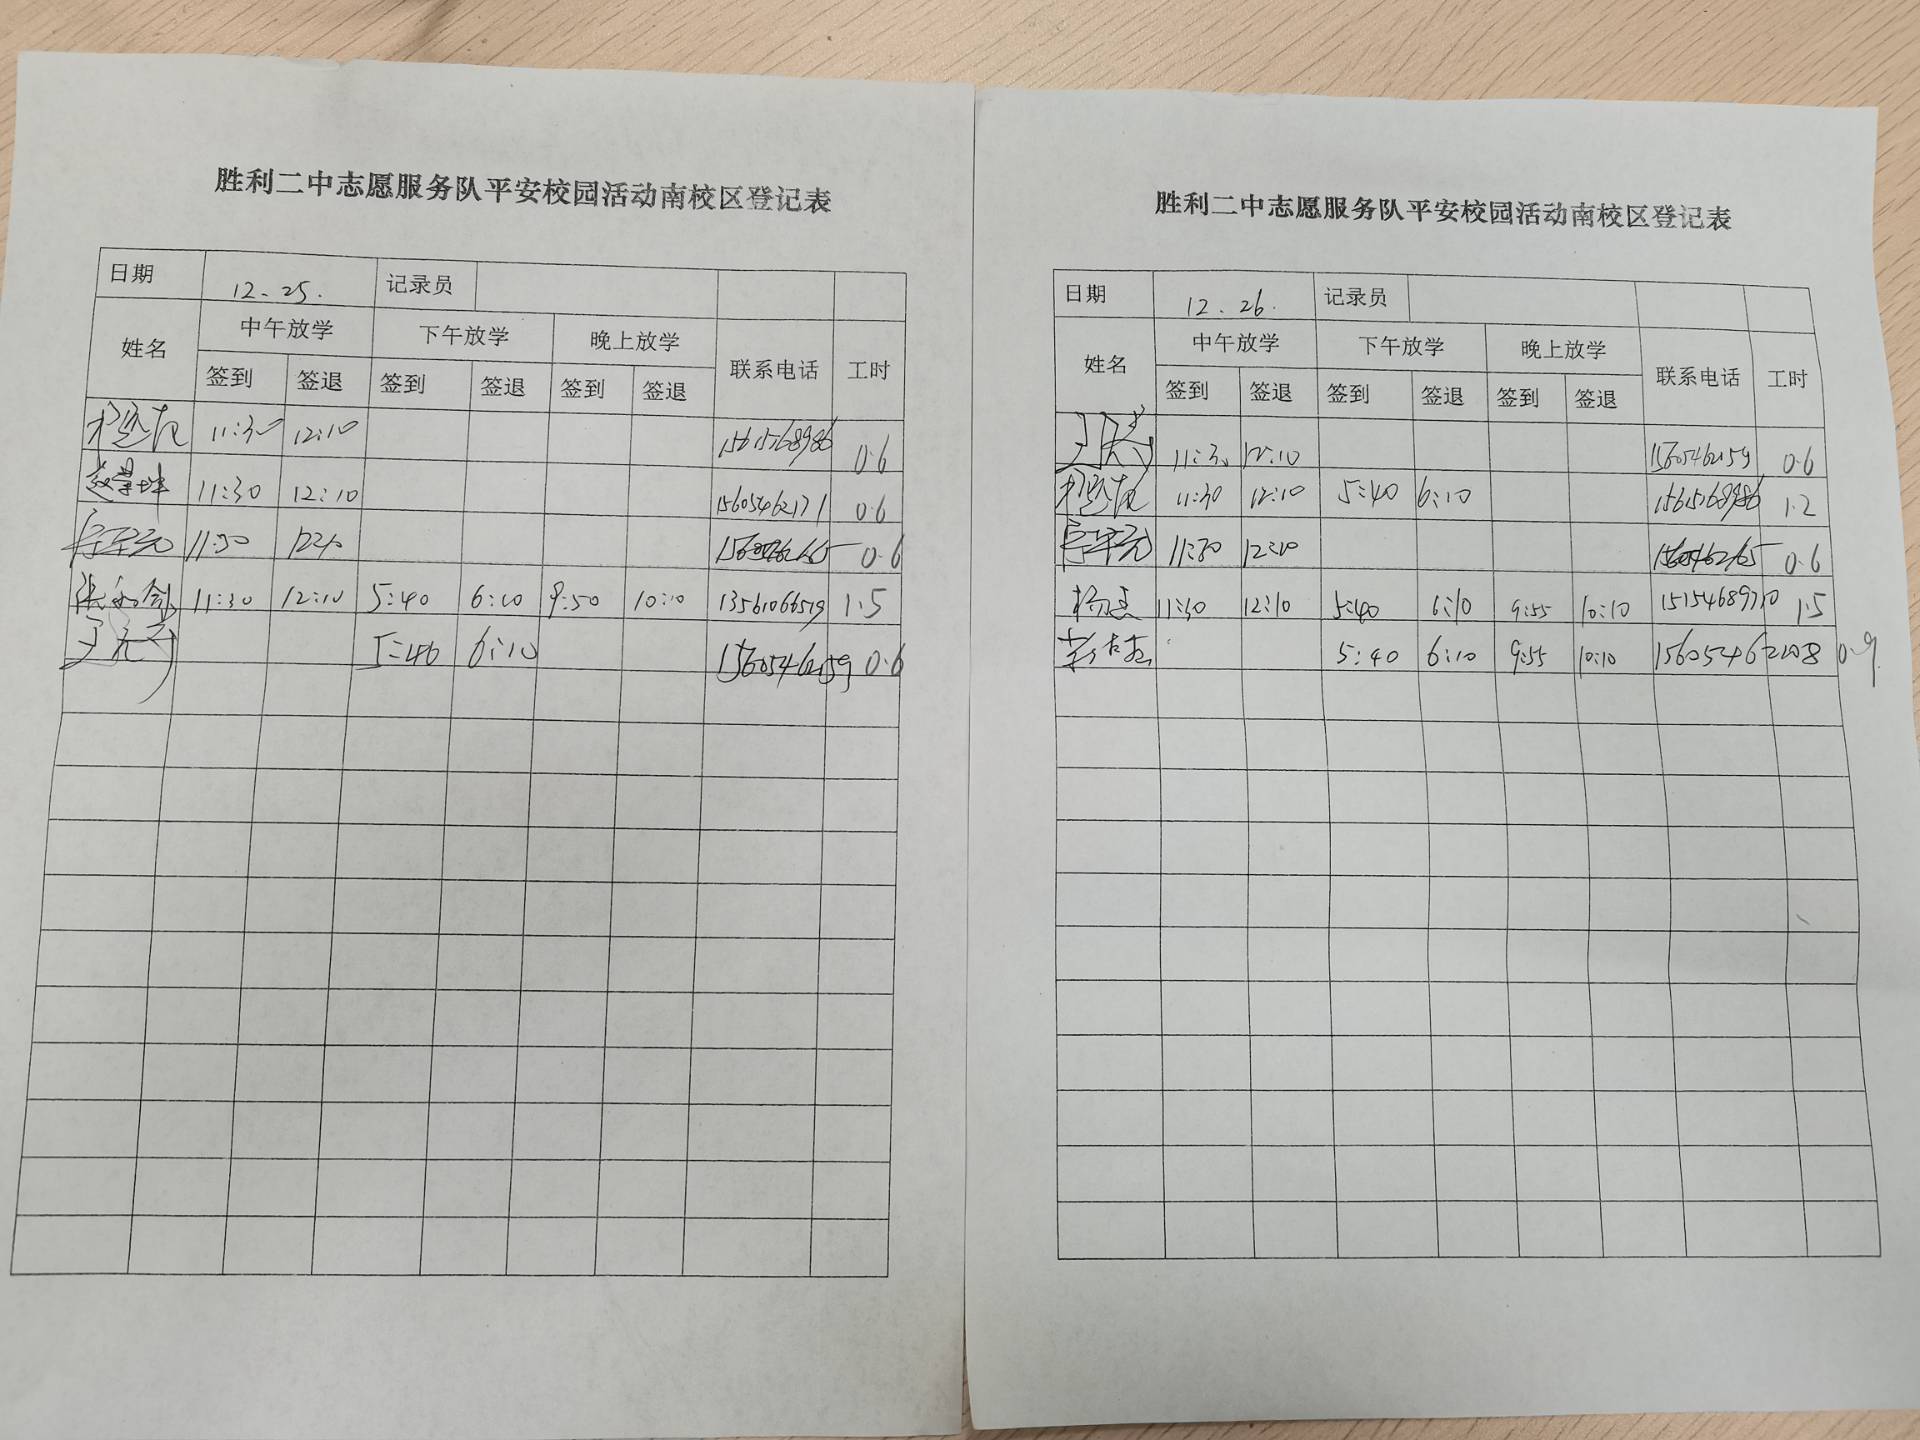 胜利二中志愿服务队平安校园活动南校区登记表
日期 12.25. 记录员
姓名 中午放学 下午放学 晚上放学 联系电话 工时
签到 签退 签到 签退 签到 签退
11:30 12:10 15615768986 0.6
11:30 12:10 15605462171 0.6
11:30 0.6
11:30 12:10 5:40 6:10 9:50 10:10 13561066519 1.5
5:40 6:10 15605462159 0.6
胜利二中志愿服务队平安校园活动南校区登记表
日期 12.26. 记录员
姓名 中午放学 下午放学 晚上放学 联系电话 工时
签到 签退 签到 签退 签到 签退
11:30 12:10 15605462159 0.6
11:30 12:10 5:40 6:10 15615768986 1.2
11:30 12:10 0.6
11:30 12:10 5:40 6:10 9:55 10:10 1.5
5:40 6:10 9:55 10:10 15605462208 0.9